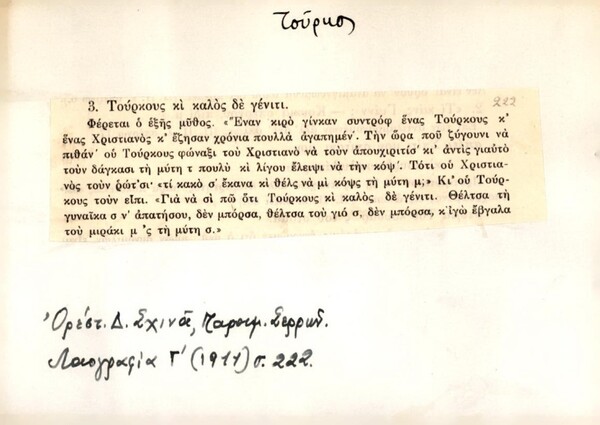 Τούρκος
3. Τούρκους κὶ καλὸς δὲ γένιτι.
222
Φέρεται ὁ ἑξῆς μῦθος. «Ἕναν κιρὸ γίνκαν συντρόφ ἕνας Τούρκους κ᾽
ἕνας Χριστιανὸς κ᾽ ἔζησαν χρόνια πουλλὰ ἀγαπημέν᾽. Τὴν ὥρα ποῦ ζύγουνι νὰ
πιθάν᾽ οὑ Τούρκους φώναξι τοὺ Χριστιανὸ νὰ τοὺν ἀπουχιριτίσ᾽ κι᾽ ἀντὶς γιαὐτὸ
τοὺν δάγκασι τὴ μύτη τ πουλὺ κὶ λίγου ἔλειψι νὰ τὴν κόψ᾽. Τότι οὑ Χριστια-
νὸς τοὺν ρώτ᾽σι· «τί κακὸ σ᾽ ἔκανα κὶ θέλς νὰ μὶ κόψς τὴ μύτη μ;» Κι᾽ οὑ Τούρ-
κους τοὺν εἶπι. «Γιὰ νὰ σὶ πῶ ὅτι Τούρκους κὶ καλὸς δὲ γένιτι. Θέλτσα τὴ
γυναῖκα σ ν᾽ ἀπατήσου, δὲν μπόρσα, θέλτσα τοὺ γιό σ, δὲν μπόρσα, κ᾽ἰγὼ ἔβγαλα
τοὺ μιράκι μ ᾽ς τὴ μύτη σ.»
Ὀρέστ. Δ. Σχινᾶ, Παροιμ. Σερρῶν.
Λαογραφία Γ΄ (1911) σ. 222.